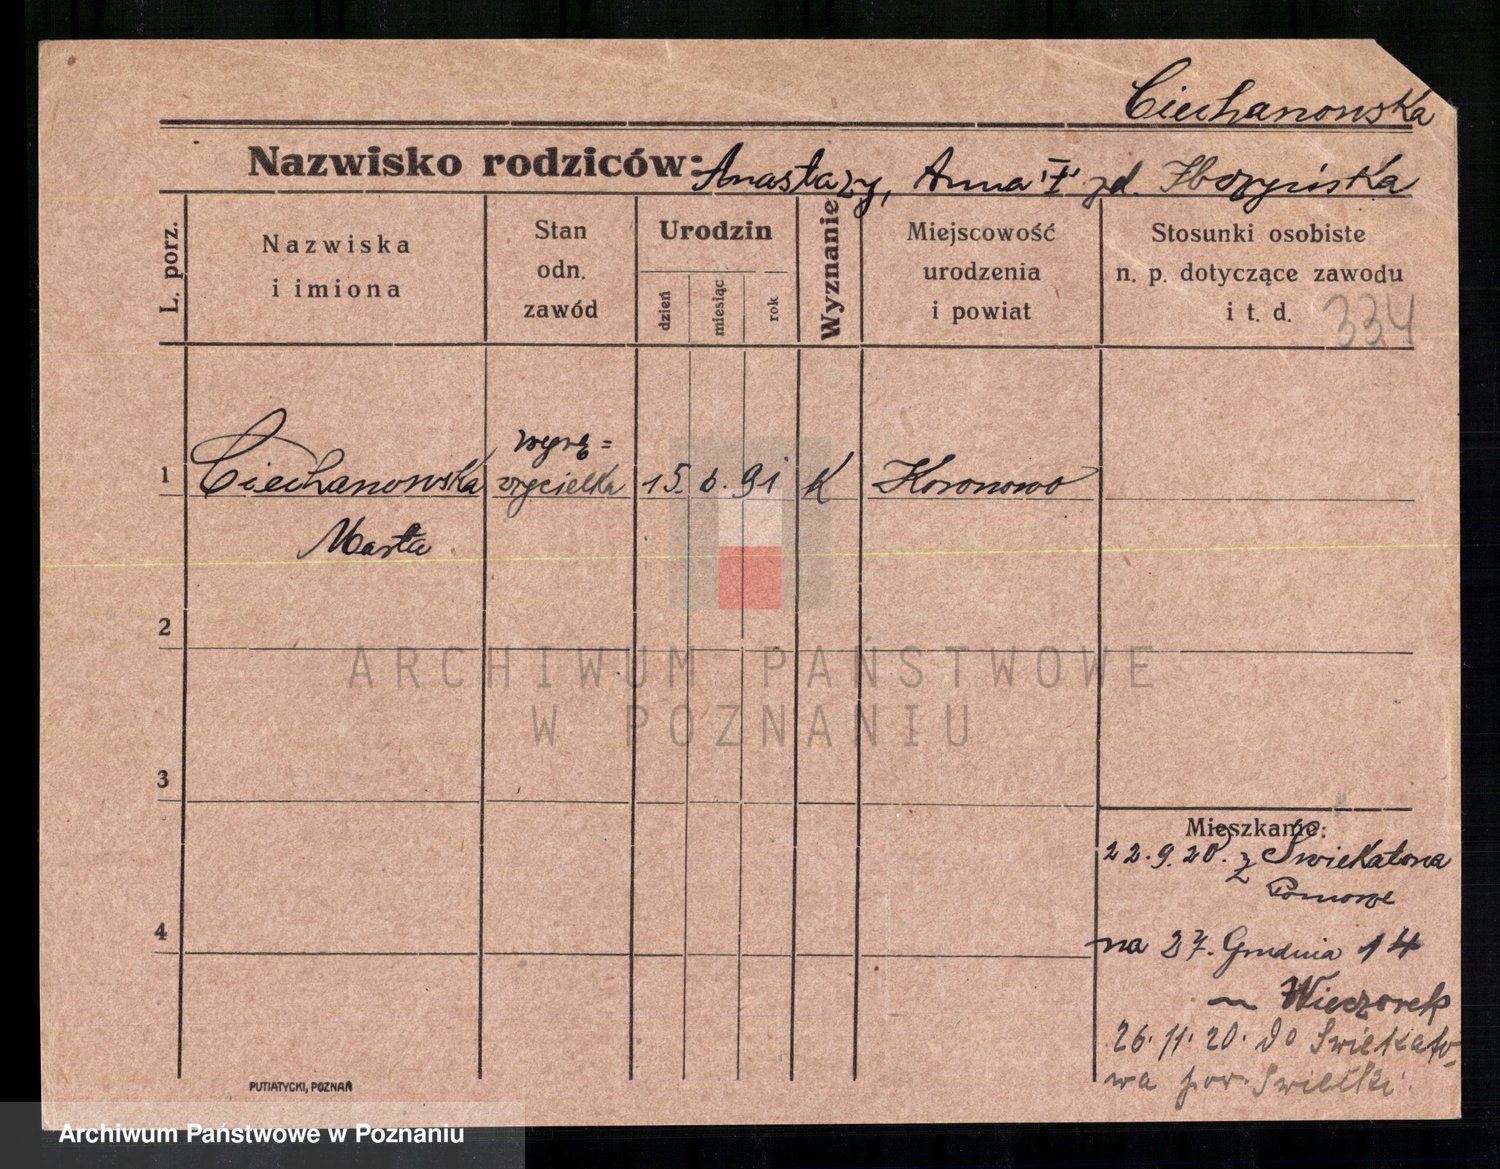 Ciechanowska
Nazwisko rodziców: Anastazy, Anna "I" zd.
L. porz.
Nazwiska
i imiona
Stan
odn.
zawód
Urodzin
dzień
miesiąc
rok
Wyznanie
Miejscowość
urodzenia
i powiat
Stosunki osobiste
n. p. dotyczące zawodu
i t. d.
334
1
Ciechanowska
Marta
wyrę=
czycielka
15. 6. 91
K
Koronowo
2
3
4
ARCHIWUM PAŃSTWOWE
W POZNANIU
Mieszkanie:
22.9.20. z Świekatowa
Pomorze
na 27. Grudnia 14
Wieczorek
26.11.20. do Swiekato-
wa pow.
PUTIATYCKI, POZNAŃ
Archiwum Państwowe w Poznaniu